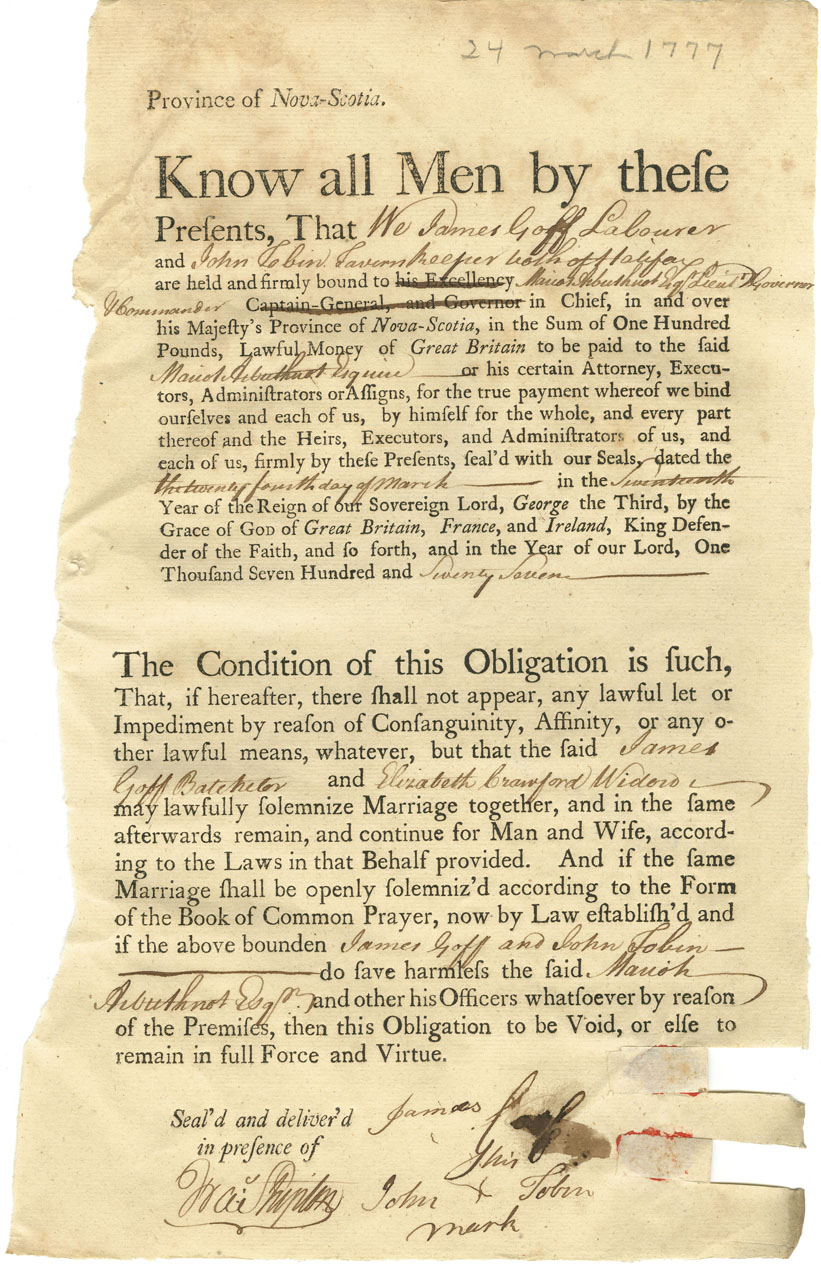 24 march 1777
Province of Nova-Scotia.
Know all Men by theſe
Preſents, That We James Goff Labourer
and John Tobin Tavernkeeper both of Halifax
are held and firmly bound to his Excellency Mariot Arbuthnot Esqr. Lieut. Governor
& Commander Captain-General, and Governor in Chief, in and over
his Majeſty's Province of Nova-Scotia, in the Sum of One Hundred
Pounds, Lawful Money of Great Britain to be paid to the ſaid
Mariot Arbuthnot Esquire or his certain Attorney, Execu-
tors, Adminiſtrators or Aſſigns, for the true payment whereof we bind
ourſelves and each of us, by himſelf for the whole, and every part
thereof and the Heirs, Executors, and Adminiſtrators of us, and
each of us, firmly by theſe Preſents, ſeal'd with our Seals, dated the
the twenty fourth day of March in the Seventeenth
Year of the Reign of our Sovereign Lord, George the Third, by the
Grace of God of Great Britain, France, and Ireland, King Defen-
der of the Faith, and ſo forth, and in the Year of our Lord, One
Thouſand Seven Hundred and Seventy Seven
The Condition of this Obligation is ſuch,
That, if hereafter, there ſhall not appear, any lawful let or
Impediment by reaſon of Conſanguinity, Affinity, or any o-
ther lawful means, whatever, but that the ſaid James
Goff Batchelor and Elizabeth Crawford Widow
may lawfully ſolemnize Marriage together, and in the ſame
afterwards remain, and continue for Man and Wife, accord-
ing to the Laws in that Behalf provided. And if the ſame
Marriage ſhall be openly ſolemniz'd according to the Form
of the Book of Common Prayer, now by Law eſtabliſh'd and
if the above bounden James Goff and John Tobin
do ſave harmleſs the ſaid Mariot
Arbuthnot Esqr. and other his Officers whatſoever by reaſon
of the Premiſes, then this Obligation to be Void, or elſe to
remain in full Force and Virtue.
Seal'd and deliver'd
in preſence of
James Goff
his
John X Tobin
mark